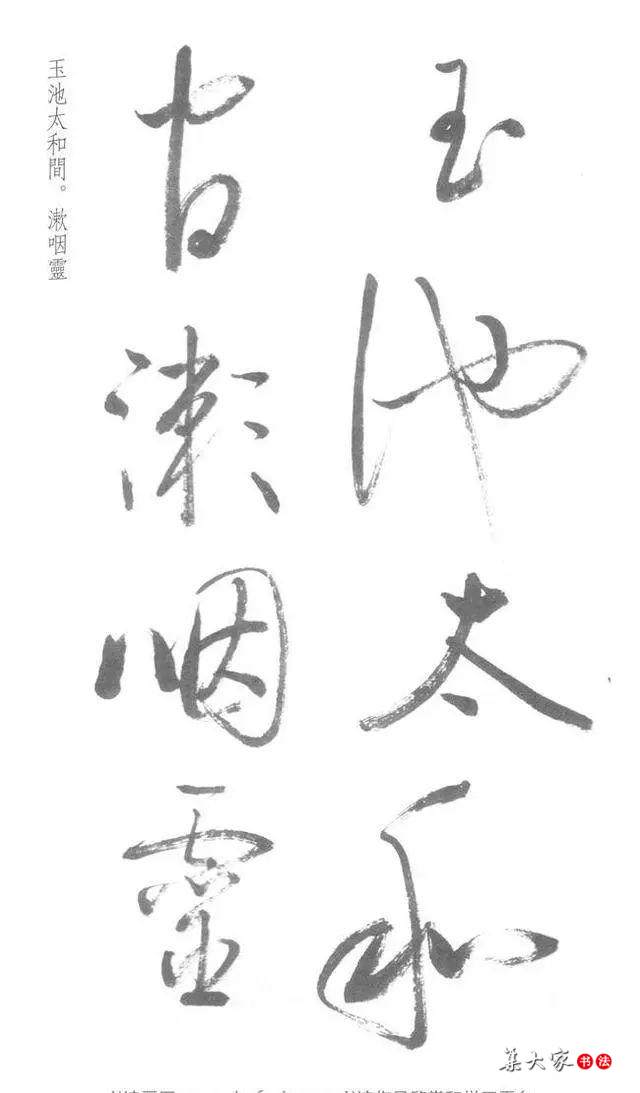 玉池太和
官漱咽靈
玉池太和間。漱咽靈
集大家书法